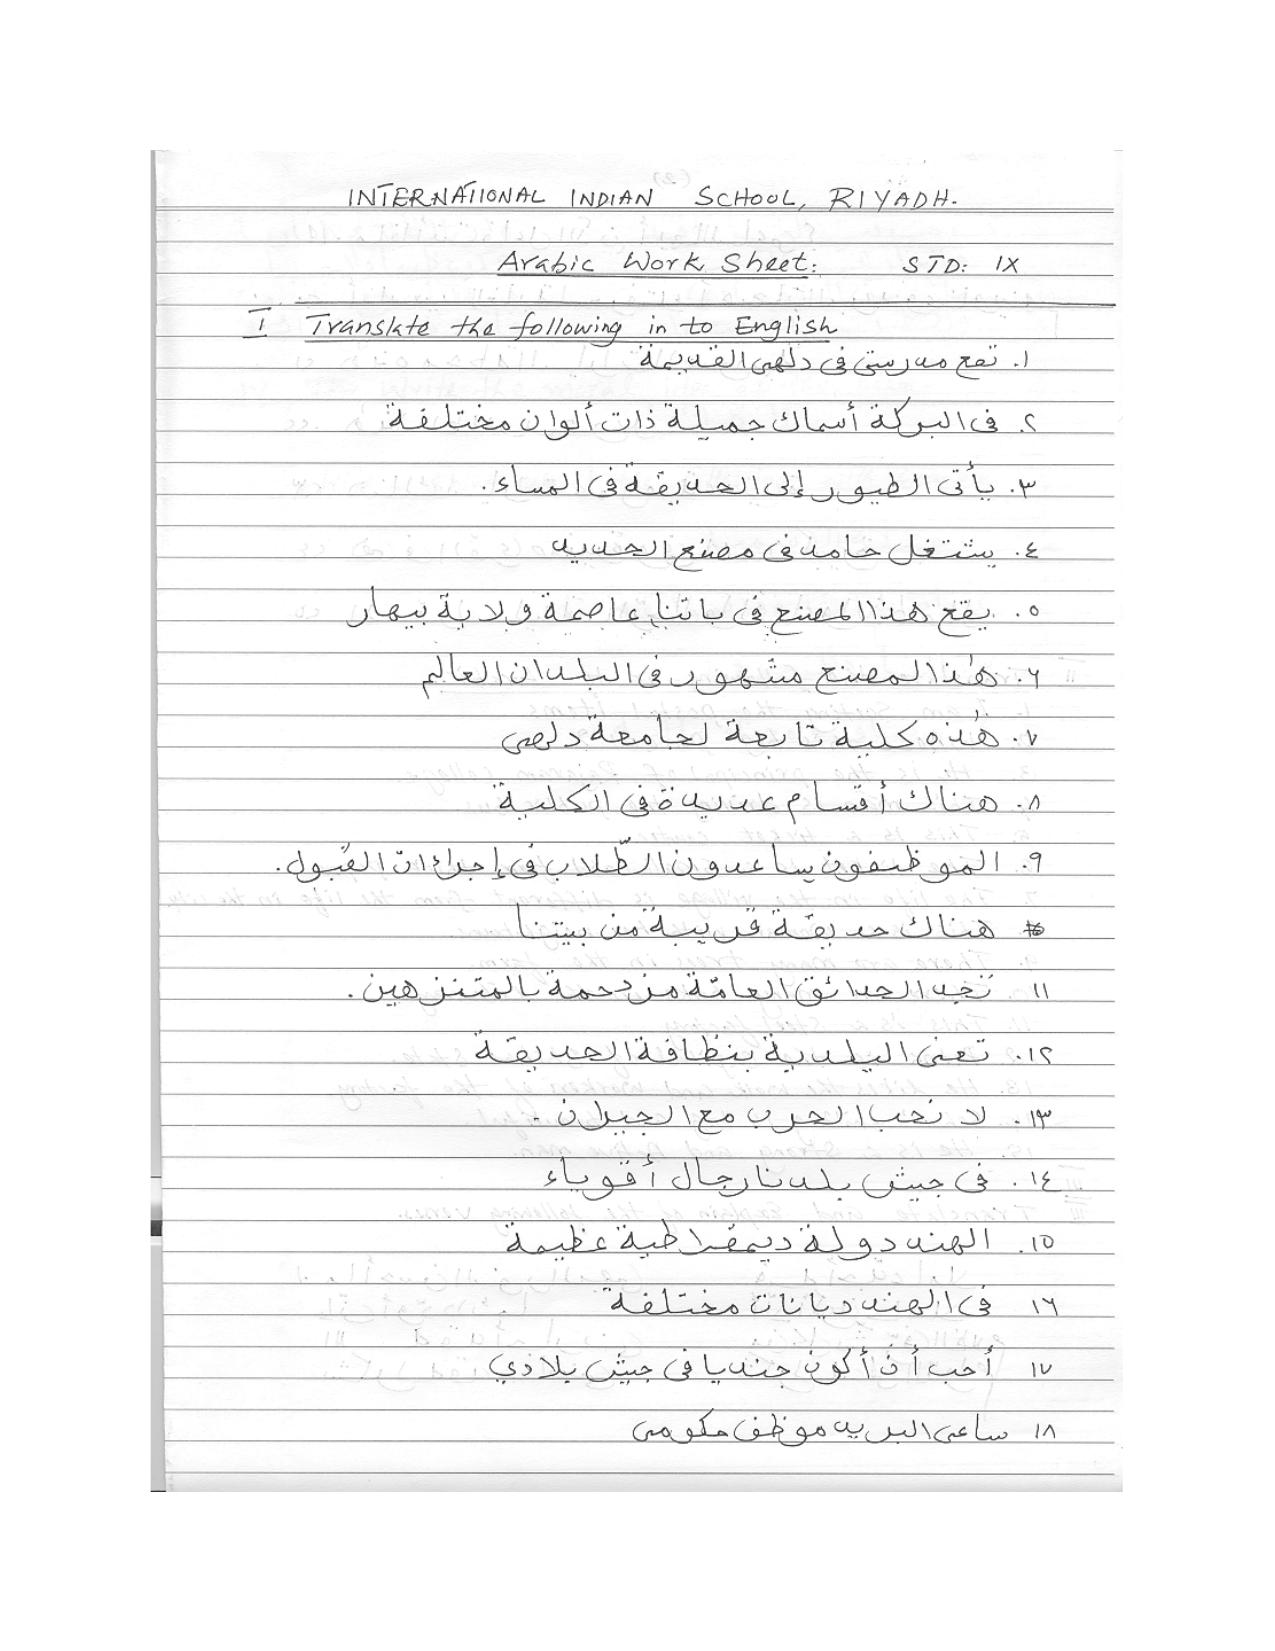 INTERNATIONAL INDIAN SCHOOL, RIYADH.
Arabic Work Sheet: STD: IX
I Translate the following in to English
١. تقع مدرستي فى دلهى القديمة
٢. فى البركة أسماك جميلة ذات ألوان مختلفة
٣. يأتى الطيور إلى الحديقة فى المساء.
٤. يشتغل حامد فى مصنع الحديد
٥. يقع هذا المصنع فى باتنا عاصمة ولاية بيهار
٦. هٰذا المصنع مشهور فى البلدان العالم
٧. هٰذه كلية تابعة لجامعة دلهى
٨. هناك أقسام عديدة فى الكلية
٩. الموظفون يساعدون الطّلاب فى إجراءات القبول.
١٠ هناك حديقة قريبة من بيتنا
١١ تجد الحدائق العامّة مزدحمة بالمتنزهين.
١٢. تعنى البلدية بنظافة الحديقة
١٣. لا نحب الحرب مع الجيران.
١٤. فى جيش بلدنا رجال أقوياء
١٥. الهند دولة ديمقراطية عظيمة
١٦ فى الهند ديانات مختلفة
١٧ أحب أن أكون جنديا فى جيش بلادي
١٨ ساعى البريد موظف حكومى